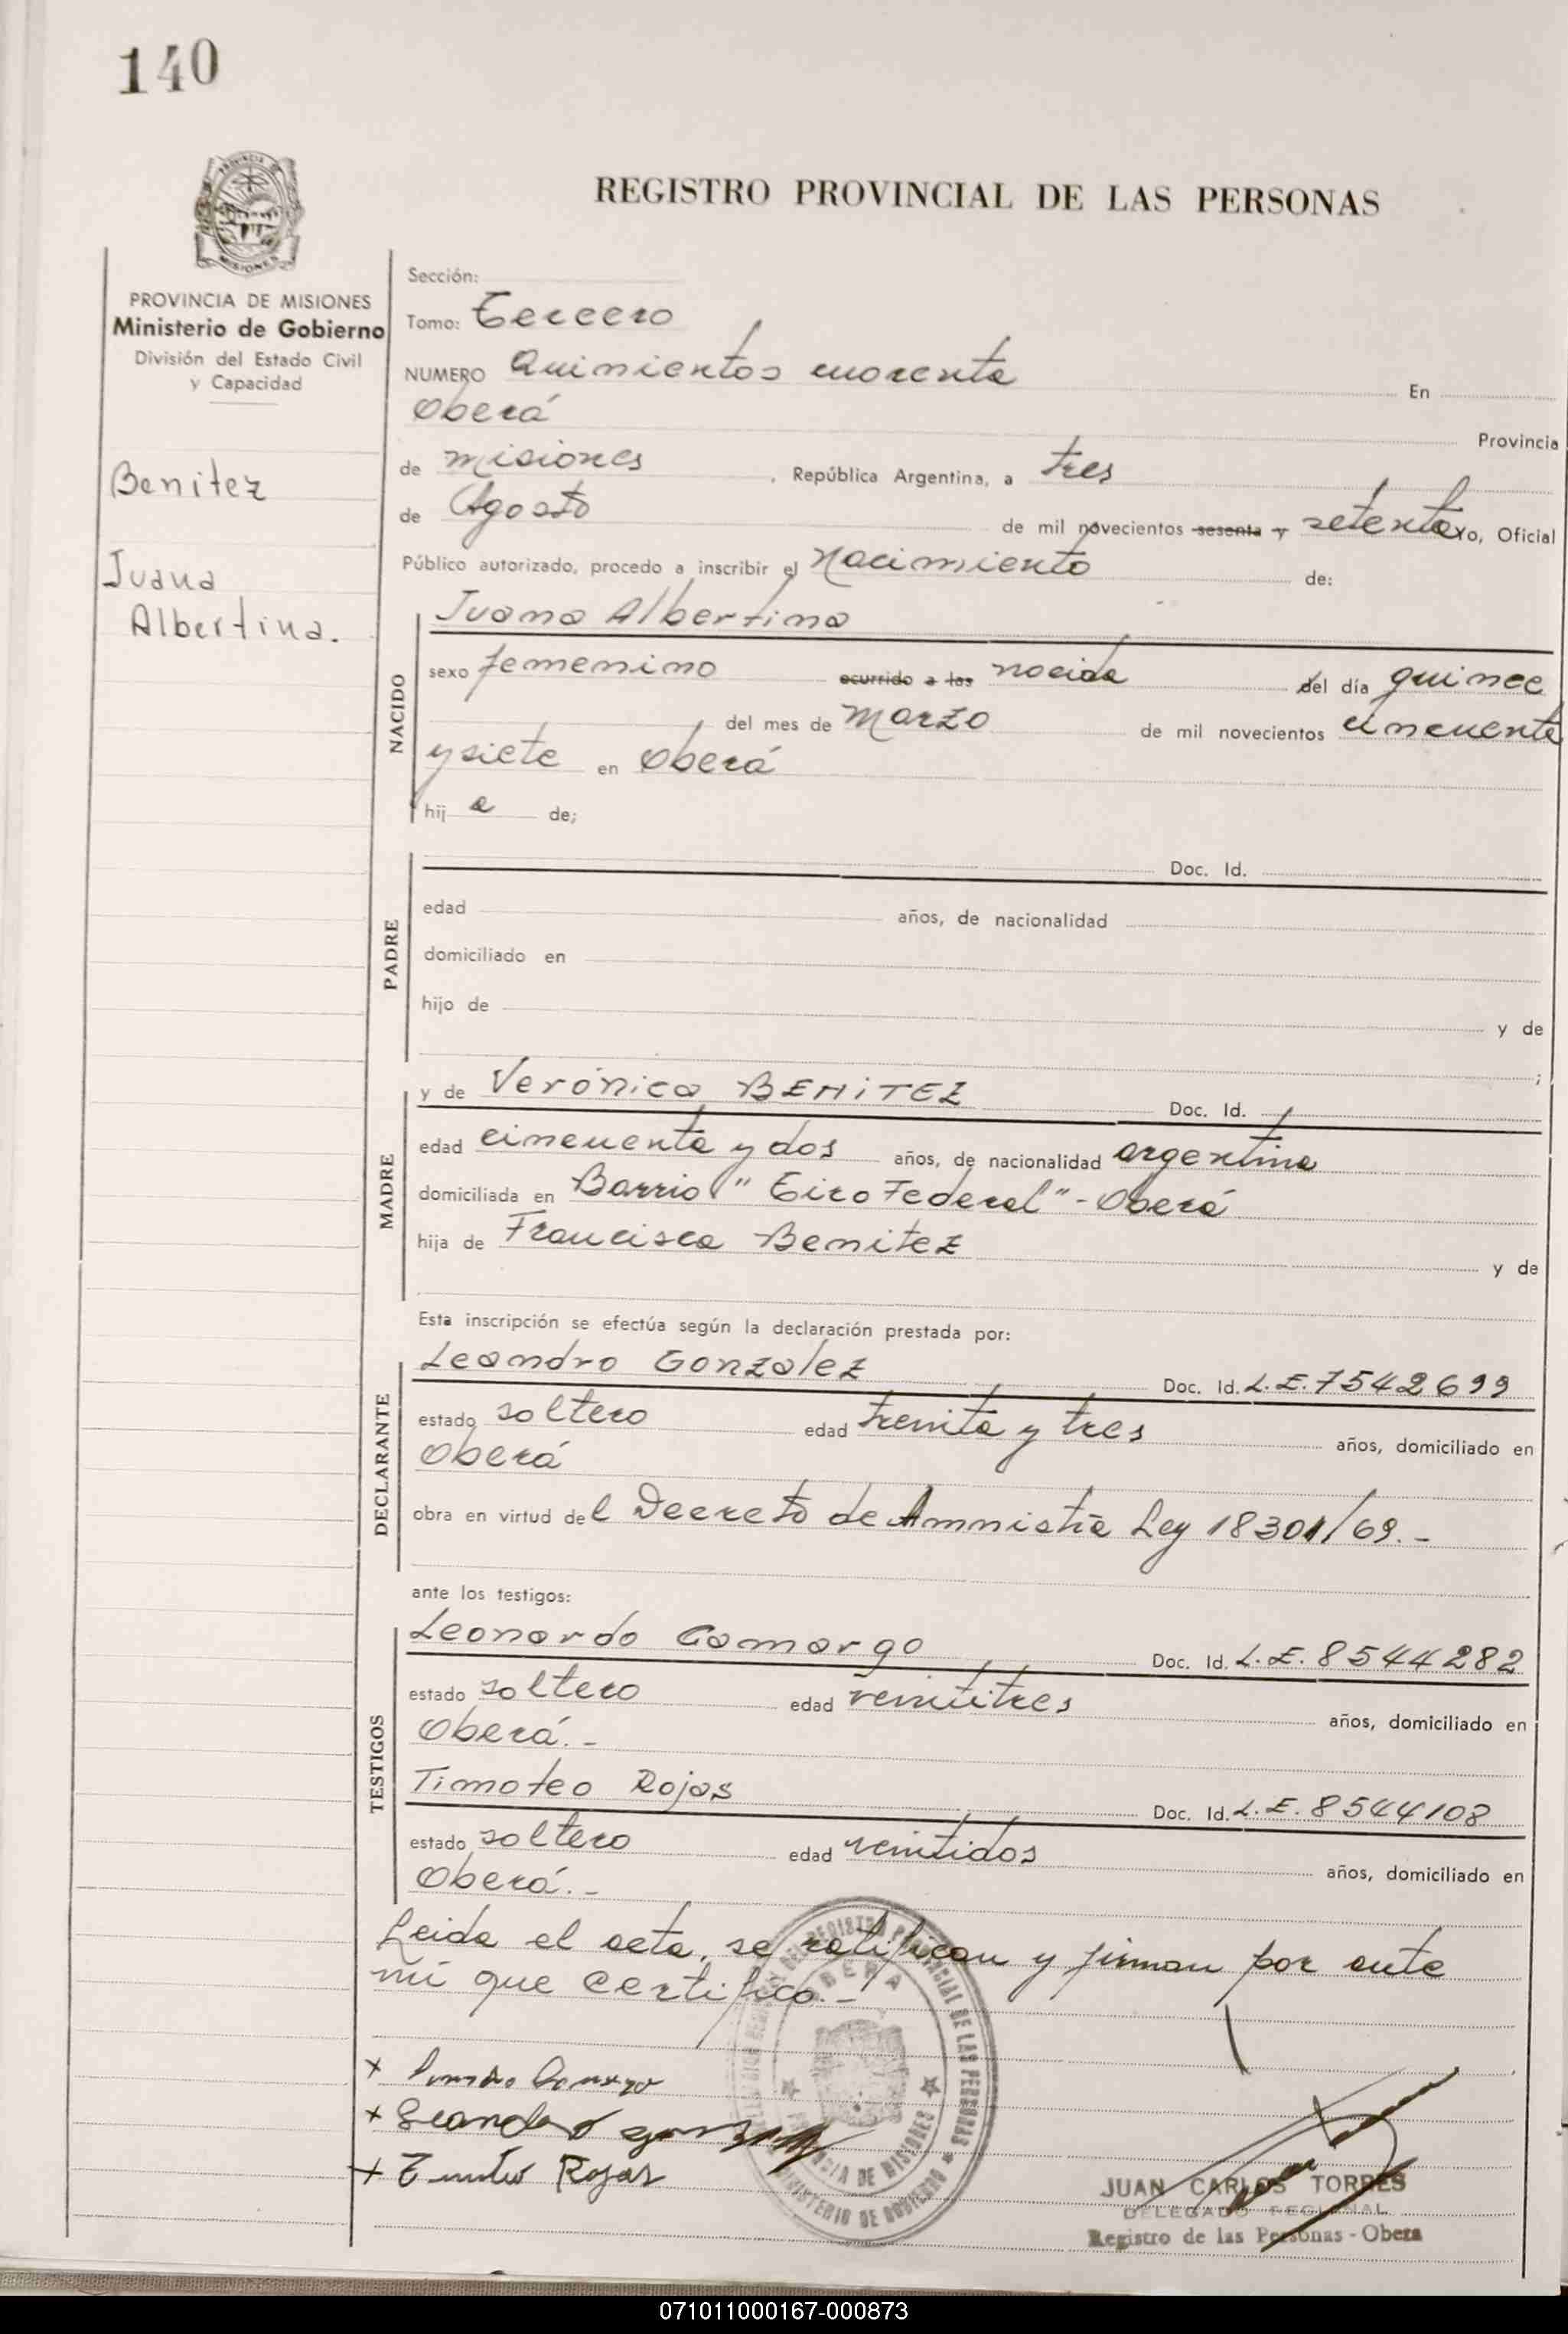 140
REGISTRO PROVINCIAL DE LAS PERSONAS
PROVINCIA DE MISIONES
Ministerio de Gobierno
División del Estado Civil
y Capacidad
Benitez
Juana
Albertina.
Sección:
Tomo: Tercero
NUMERO Quinientos cuarenta En
Oberá Provincia
de Misiones , República Argentina, a tres
de Agosto de mil novecientos sesenta y setenta yo, Oficial
Público autorizado, procedo a inscribir el Nacimiento de:
NACIDO
Juana Albertina
sexo femenino ocurrido a las nacida del día quince
del mes de Marzo de mil novecientos cincuenta
y siete en Oberá
hij a de;
PADRE
Doc. Id.
edad años, de nacionalidad
domiciliado en
hijo de y de
;
MADRE
y de Verónica BENITEZ Doc. Id.
edad cincuenta y dos años, de nacionalidad argentina
domiciliada en Barrio "Tiro Federal" - Oberá
hija de Francisca Benitez y de
Esta inscripción se efectúa según la declaración prestada por:
DECLARANTE
Leandro Gonzalez Doc. Id. L.E. 7542699
estado soltero edad treinta y tres años, domiciliado en
Oberá
obra en virtud del Decreto de Amnistía Ley 18301/69.-
ante los testigos:
TESTIGOS
Leonardo Camargo Doc. Id. L.E. 8544282
estado soltero edad veintitres años, domiciliado en
Oberá.-
Timoteo Rojas Doc. Id. L.E. 8544108
estado soltero edad veintidos años, domiciliado en
Oberá.-
Leida el acta, se ratifican y firman por ante
mí que certifico.-
x
x Leandro
x Rojas
JUAN CARLOS TORRES
DELEGADO REGIONAL
Registro de las Personas - Obera
OBERA
PROVINCIA DE MISIONES
MINISTERIO DE GOBIERNO
071011000167-000873